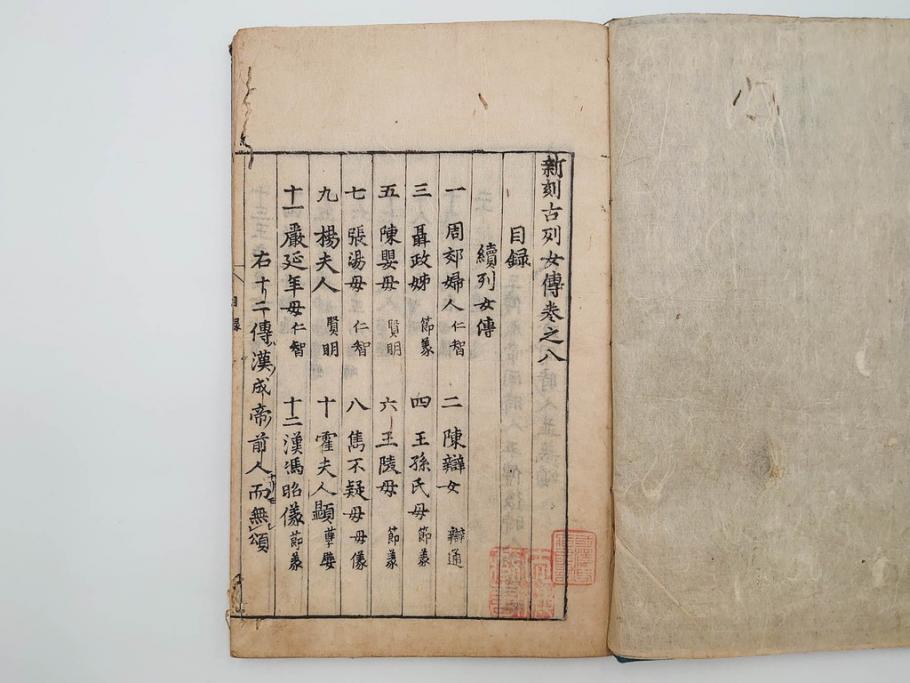 新刻古列女傳卷之八
目錄
續列女傳
一 周郊婦人 仁智 二 陳辯女 辯通
三 聶政姊 節義 四 王孫氏母 節義
五 陳嬰母 賢明 六 王陵母 節義
七 張湯母 仁智 八 雋不疑母 母儀
九 楊夫人 賢明 十 霍夫人顯 孽嬖
十一 嚴延年母 仁智 十二 漢馮昭儀 節義
右十二傳漢成帝前人而無頌
目錄